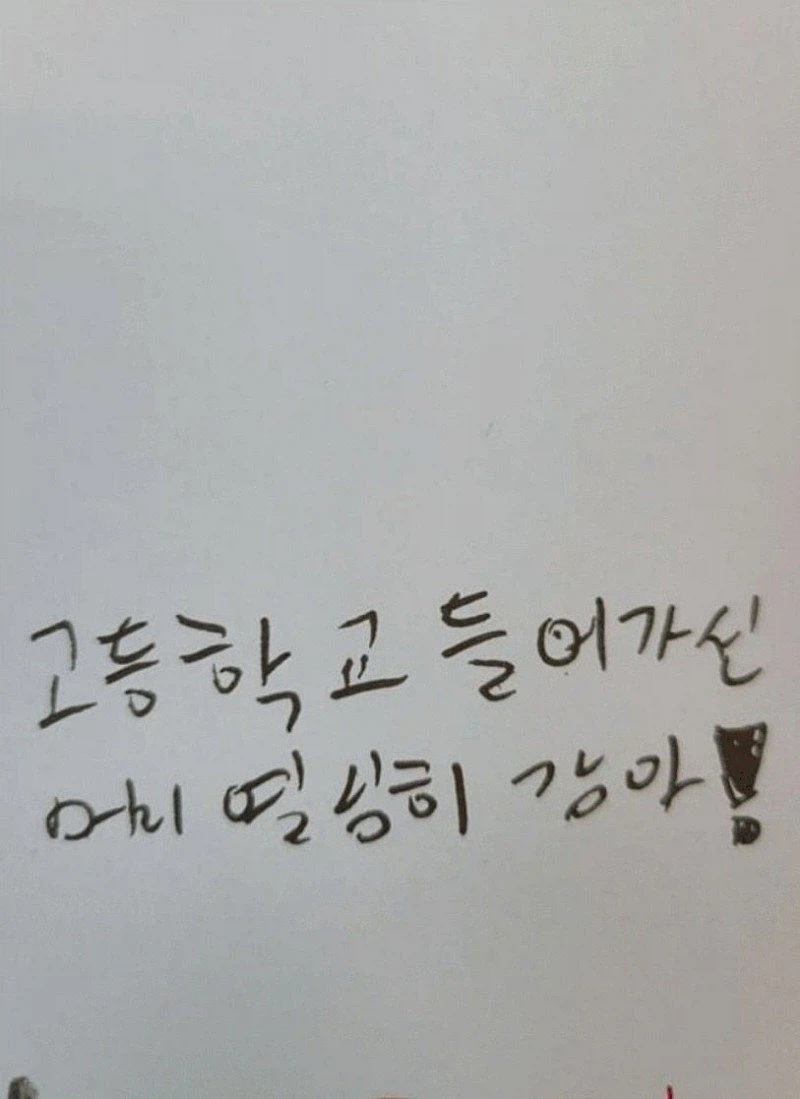 고등학교 들어가신
어찌 열심히 강아!